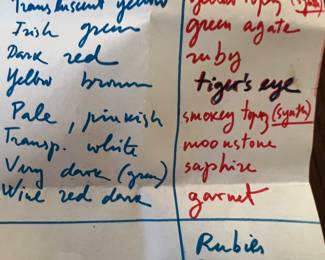 Transluscent yellow golden topaz (synth)
Irish green green agate
Dark red ruby
Yellow brown tiger's eye
Pale, pinkish smokey topaz (synth)
Transp. white moonstone
Very dark (green) saphire
Wine red dark garnet
Rubies